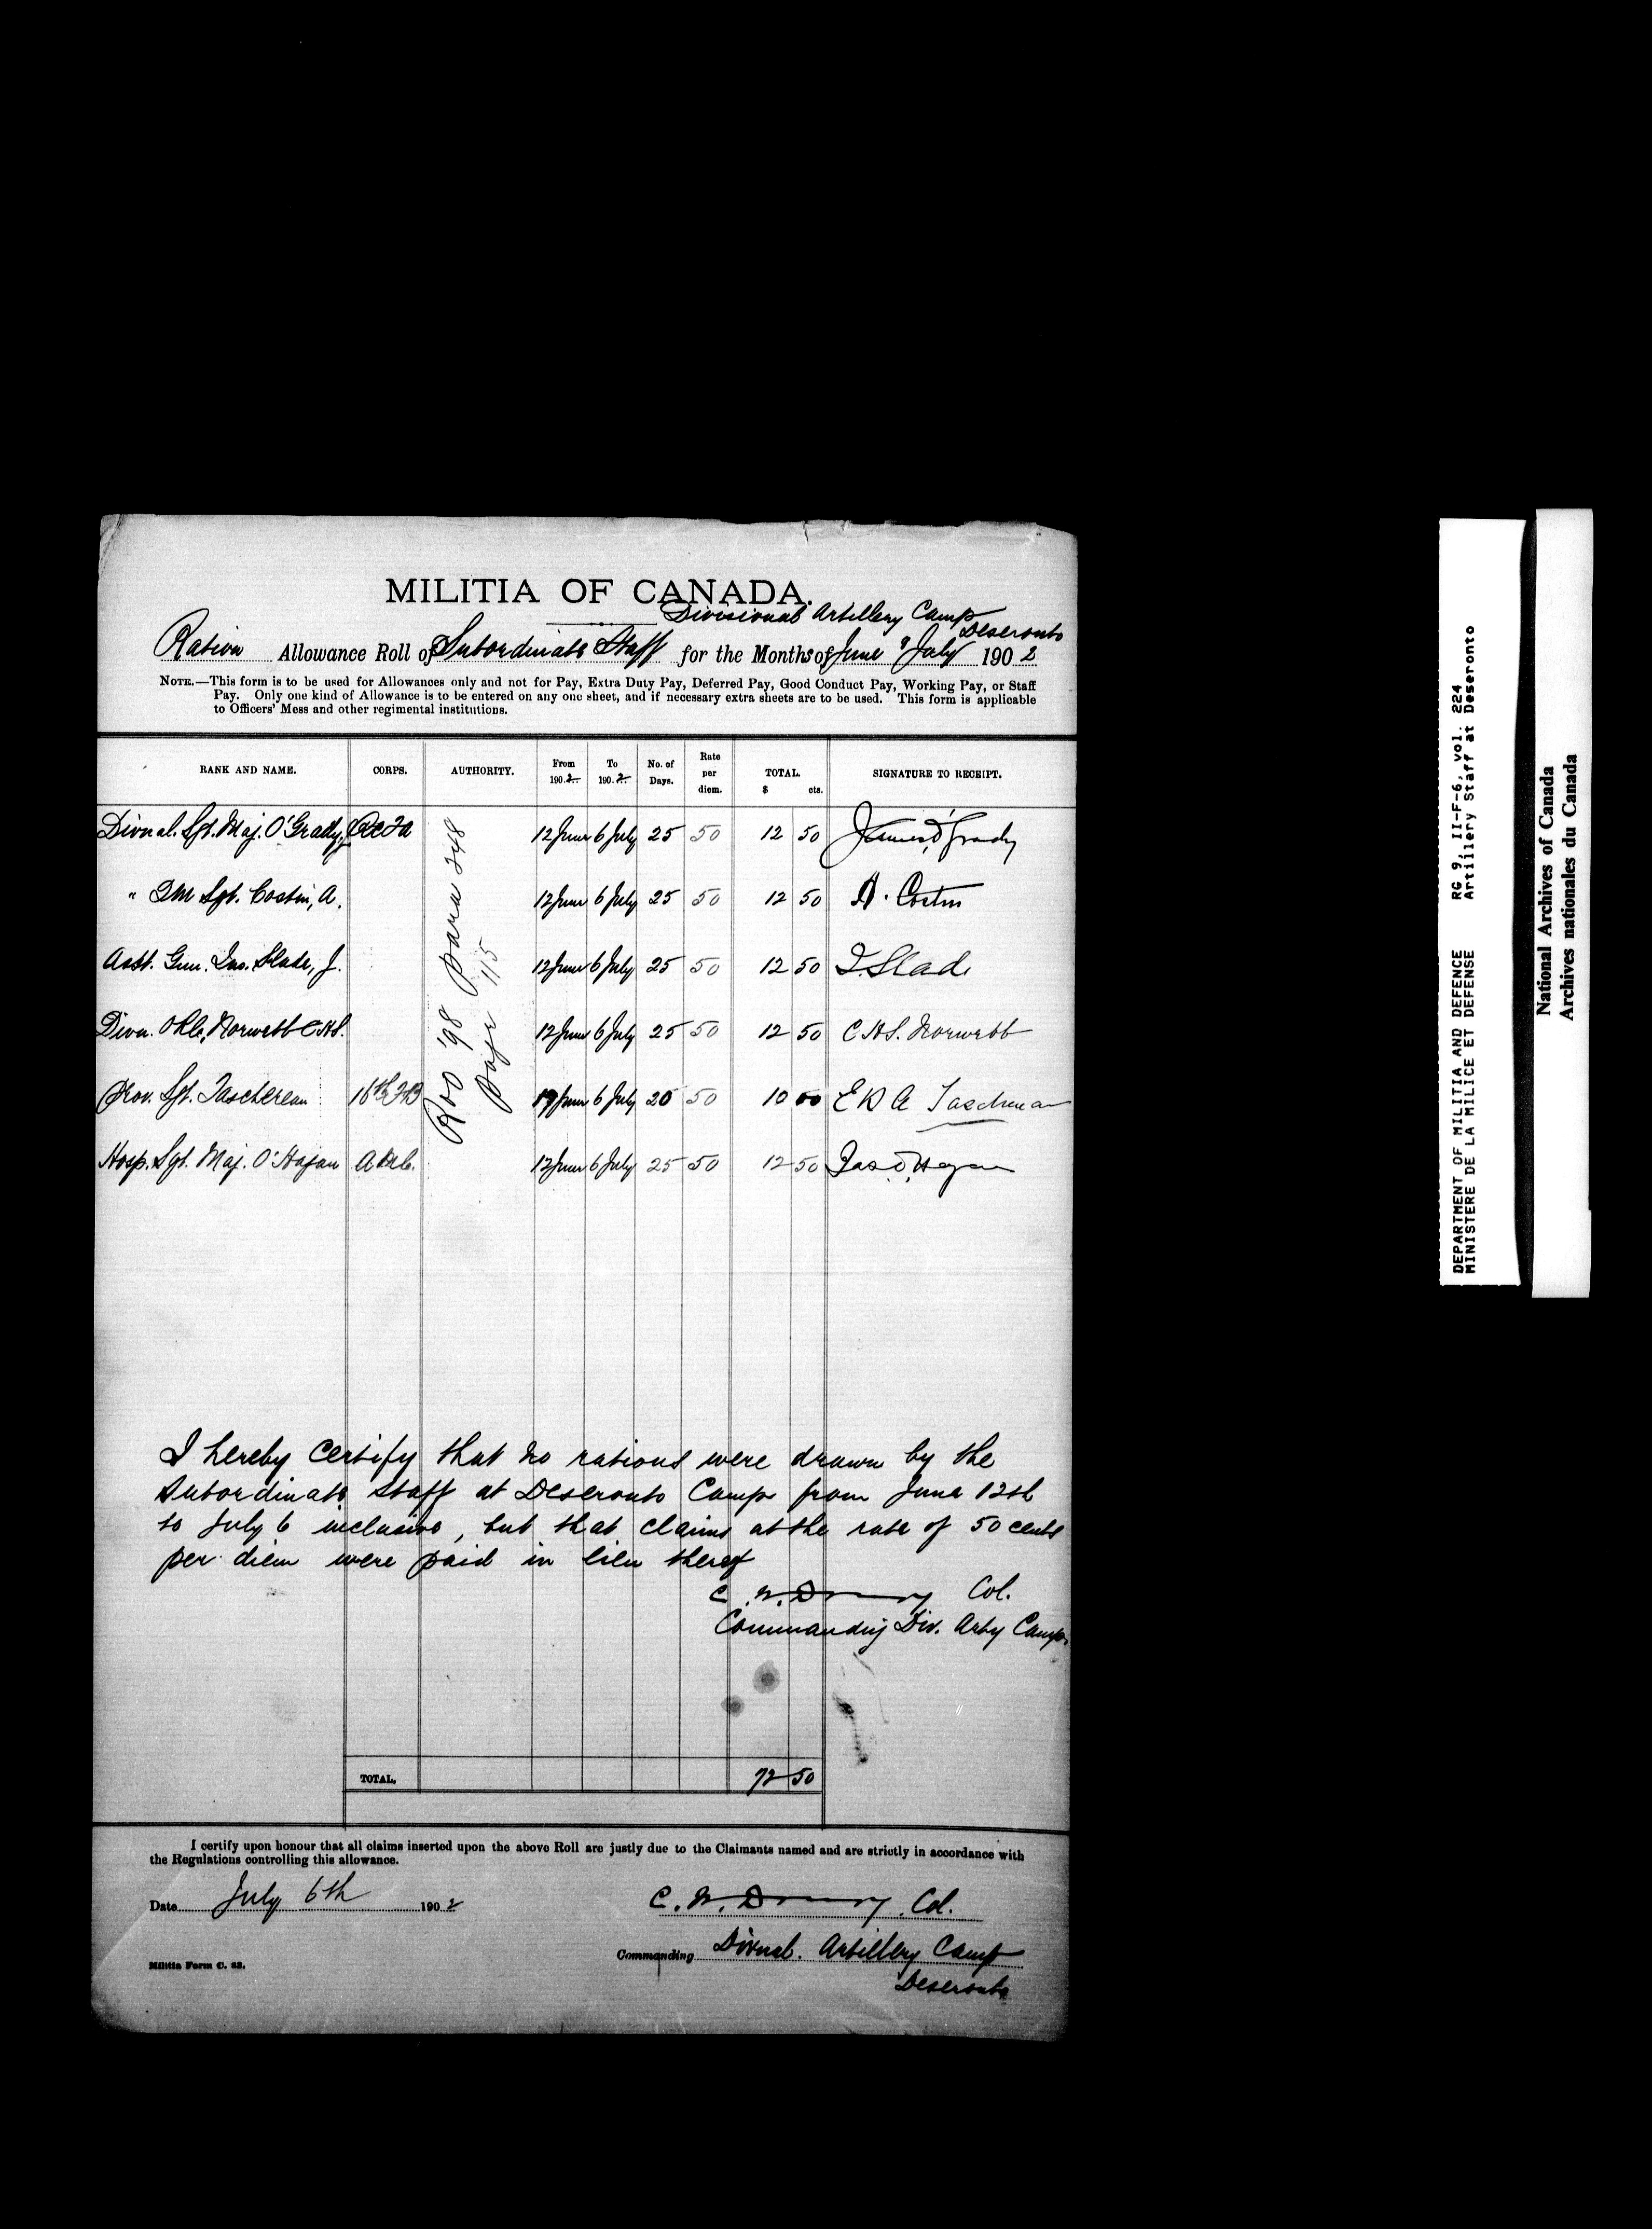 MILITIA OF CANADA.
Divisional Artillery Camp
Deseronto
Ration Allowance Roll of Subordinate Staff for the Months of June & July 1902
NOTE.—This form is to be used for Allowances only and not for Pay, Extra Duty Pay, Deferred Pay, Good Conduct Pay, Working Pay, or Staff
Pay. Only one kind of Allowance is to be entered on any one sheet, and if necessary extra sheets are to be used. This form is applicable
to Officers' Mess and other regimental institutions.
RANK AND NAME. CORPS. AUTHORITY. From 190.2. To 190.2. No. of Days. Rate per diem. TOTAL. $ cts. SIGNATURE TO RECEIPT.
Divnal. Sgt. Maj. O'Grady, J. RCFA 12 June 6 July 25 50 12 50 James O'Grady
" QM Sgt. Costin, A. 12 June 6 July 25 50 12 50 A. Costin
Asst. Gun. Ins. Slade, J. 12 June 6 July 25 50 12 50 J. Slade
Divn. ORC, Norwebb C.H.S. 12 June 6 July 25 50 12 50 C H S. Norwebb
Prov. Sgt. Taschereau 16th FB 17 June 6 July 20 50 10 00 E R A Taschereau
Hosp. Sgt. Maj. O'Hagan 12 June 6 July 25 50 12 50 Jas O'Hagan
ROO '98 para 248
page 115
I hereby certify that no rations were drawn by the
Subordinate Staff at Deseronto Camp from June 12th
to July 6 inclusive, but that claims at the rate of 50 cents
per diem were paid in lieu thereof
C. W. Drury Col.
Commanding Div. Arty Camp.
TOTAL. 72 50
I certify upon honour that all claims inserted upon the above Roll are justly due to the Claimants named and are strictly in accordance with
the Regulations controlling this allowance.
Date July 6th 1902
C. W. Drury, Col.
Commanding Divnal. Artillery Camp
Deseronto
Militia Form C. 62.
DEPARTMENT OF MILITIA AND DEFENCE RG 9, II-F-6, vol. 224
MINISTERE DE LA MILICE ET DEFENSE Artillery Staff at Deseronto
National Archives of Canada
Archives nationales du Canada